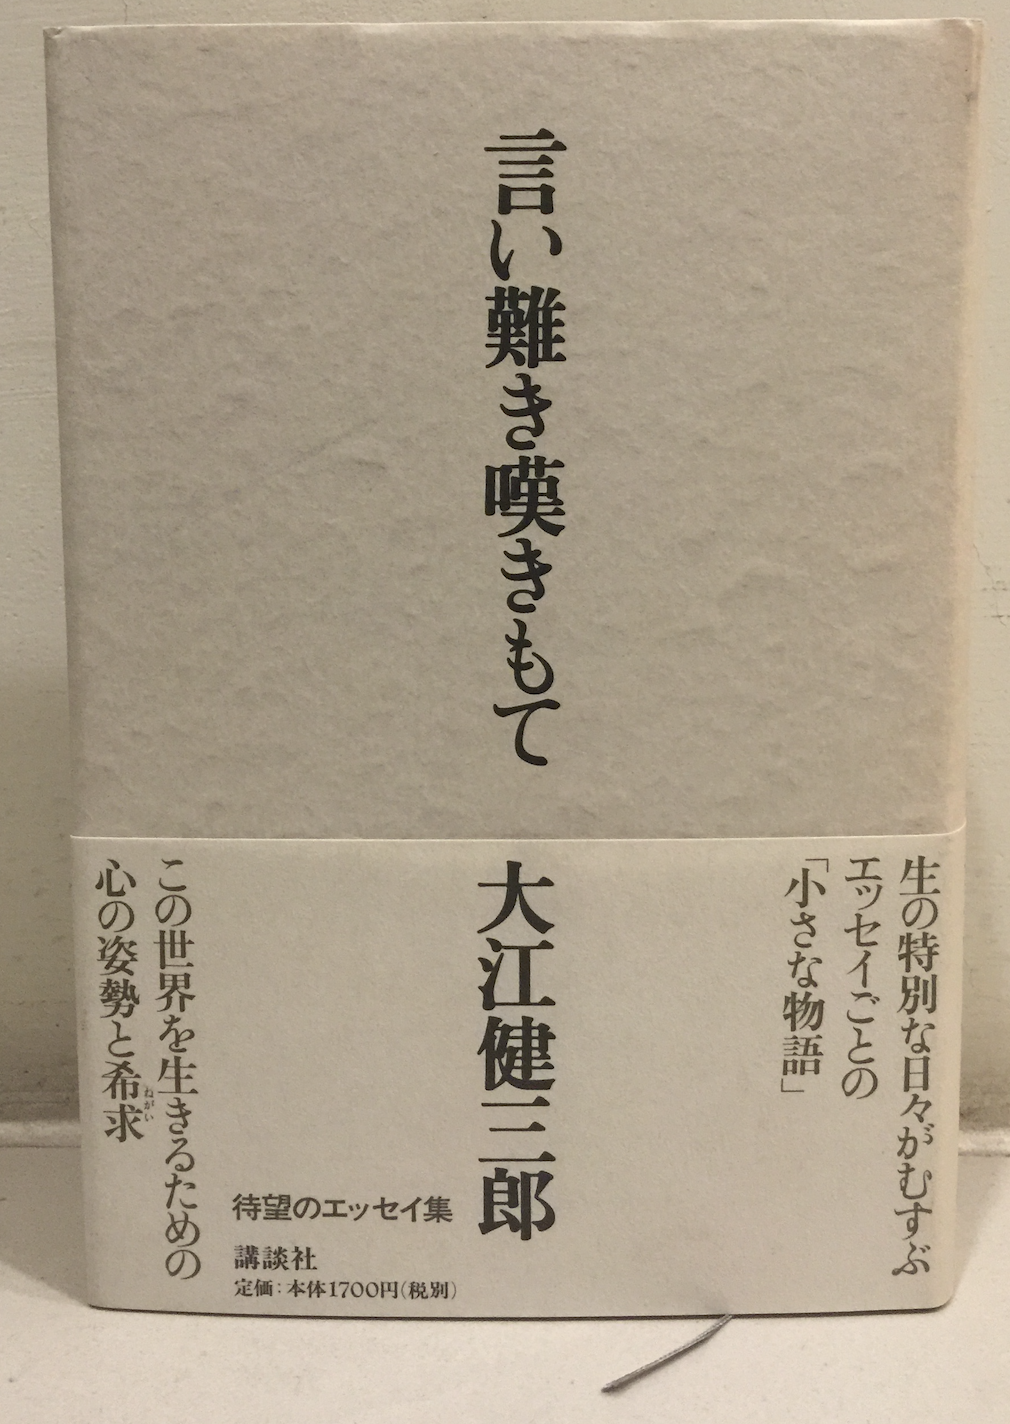 言い難き嘆きもて
大江健三郎
生の特別な日々がむすぶ
エッセイごとの
「小さな物語」
この世界を生きるための
心の姿勢と希求
ねがい
待望のエッセイ集
講談社
定価:本体1700円(税別)